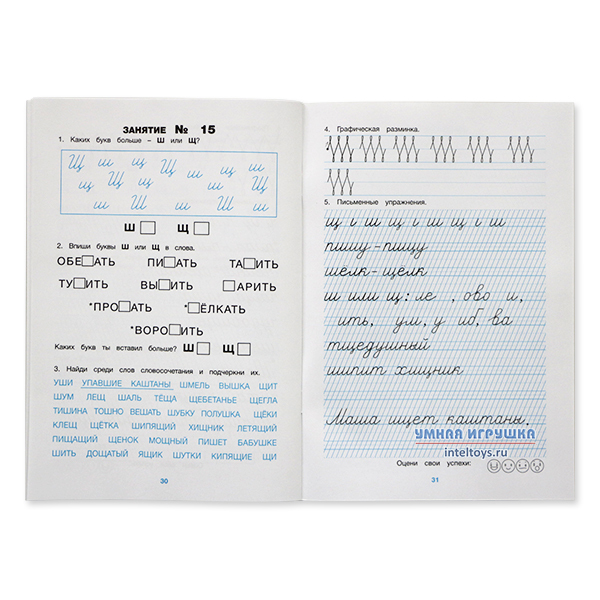 ЗАНЯТИЕ № 15
1. Каких букв больше – Ш или Щ?
Щ ш щ Щ ш щ Щ ш
щ Щ ш щ ш щ
ш Ш ш Ш ш
Ш □ Щ □
2. Впиши буквы Ш или Щ в слова.
ОБЕ□АТЬ ПИ□АТЬ ТА□ИТЬ
ТУ□ИТЬ ВЫ□ИТЬ □АРИТЬ
*ПРО□АТЬ *□ЁЛКАТЬ
*ВОРО□ИТЬ
Каких букв ты вставил больше? Ш □ Щ □
3. Найди среди слов словосочетания и подчеркни их.
УШИ УПАВШИЕ КАШТАНЫ ШМЕЛЬ ВЫШКА ЩИТ
ШУМ ЛЕЩ ШАЛЬ ТЁЩА ЩЕБЕТАНЬЕ ЩЕГЛА
ТИШИНА ТОШНО ВЕШАТЬ ШУБКУ ПОЛУШКА ЩЁКИ
КЛЕЩ ЩЁТКА ШИПЯЩИЙ ХИЩНИК ЛЕТЯЩИЙ
ПИЩАЩИЙ ЩЕНОК МОЩНЫЙ ПИШЕТ БАБУШКЕ
ШИТЬ ДОЩАТЫЙ ЯЩИК ШУТКИ КИПЯЩИЕ ЩИ
30
4. Графическая разминка.
5. Письменные упражнения.
щ ι ш щ ι ш щ ι ш
пишу - пищу
шёлк - щелк
ш или щ: ле , ово и,
ить, ум, у иб, ва
тщедушный
шипит хищник
Маша ищет каштаны.
УМНАЯ ИГРУШКА
inteltoys.ru
Оцени свои успехи:
31